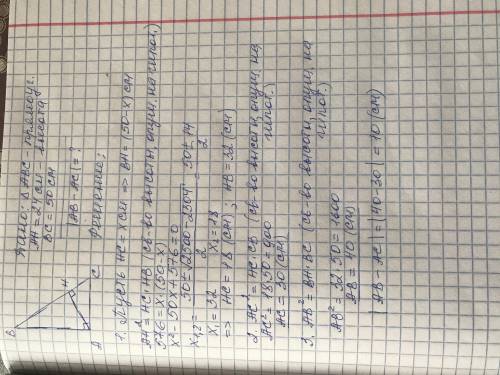 Дано: Δ ABC - прямоуг.
AH = 24 см - высота
BC = 50 см
|AB - AC| = ?
Решение:
B
H
A
C
1. Пусть HC = x см => BH = (50-x) см
AH² = HC·HB (св-во высоты, опущ. на гипот.)
576 = x·(50-x)
x² - 50x + 576 = 0
x₁,₂ = (50 ± √(2500 - 2304))/2 = (50 ± 14)/2
x₁ = 32 x₂ = 18
=> HC = 18 (см); HB = 32 (см)
2. AC² = HC·CB (св-во высоты, опущ. на
гипот.)
AC² = 18·50 = 900
AC = 30 (см)
3. AB² = BH·BC (св-во высоты, опущ. на
гипот.)
AB² = 32·50 = 1600
AB = 40 (см)
|AB - AC| = |40-30| = 10 (см)